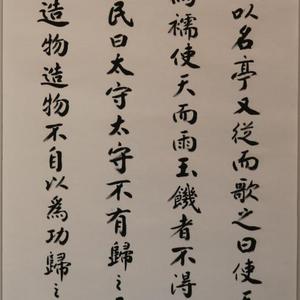 以名亭又從而歌之曰使天
為襦使天而雨玉饑者不得
民曰太守太守不有歸之
造物造物不自以為功歸之